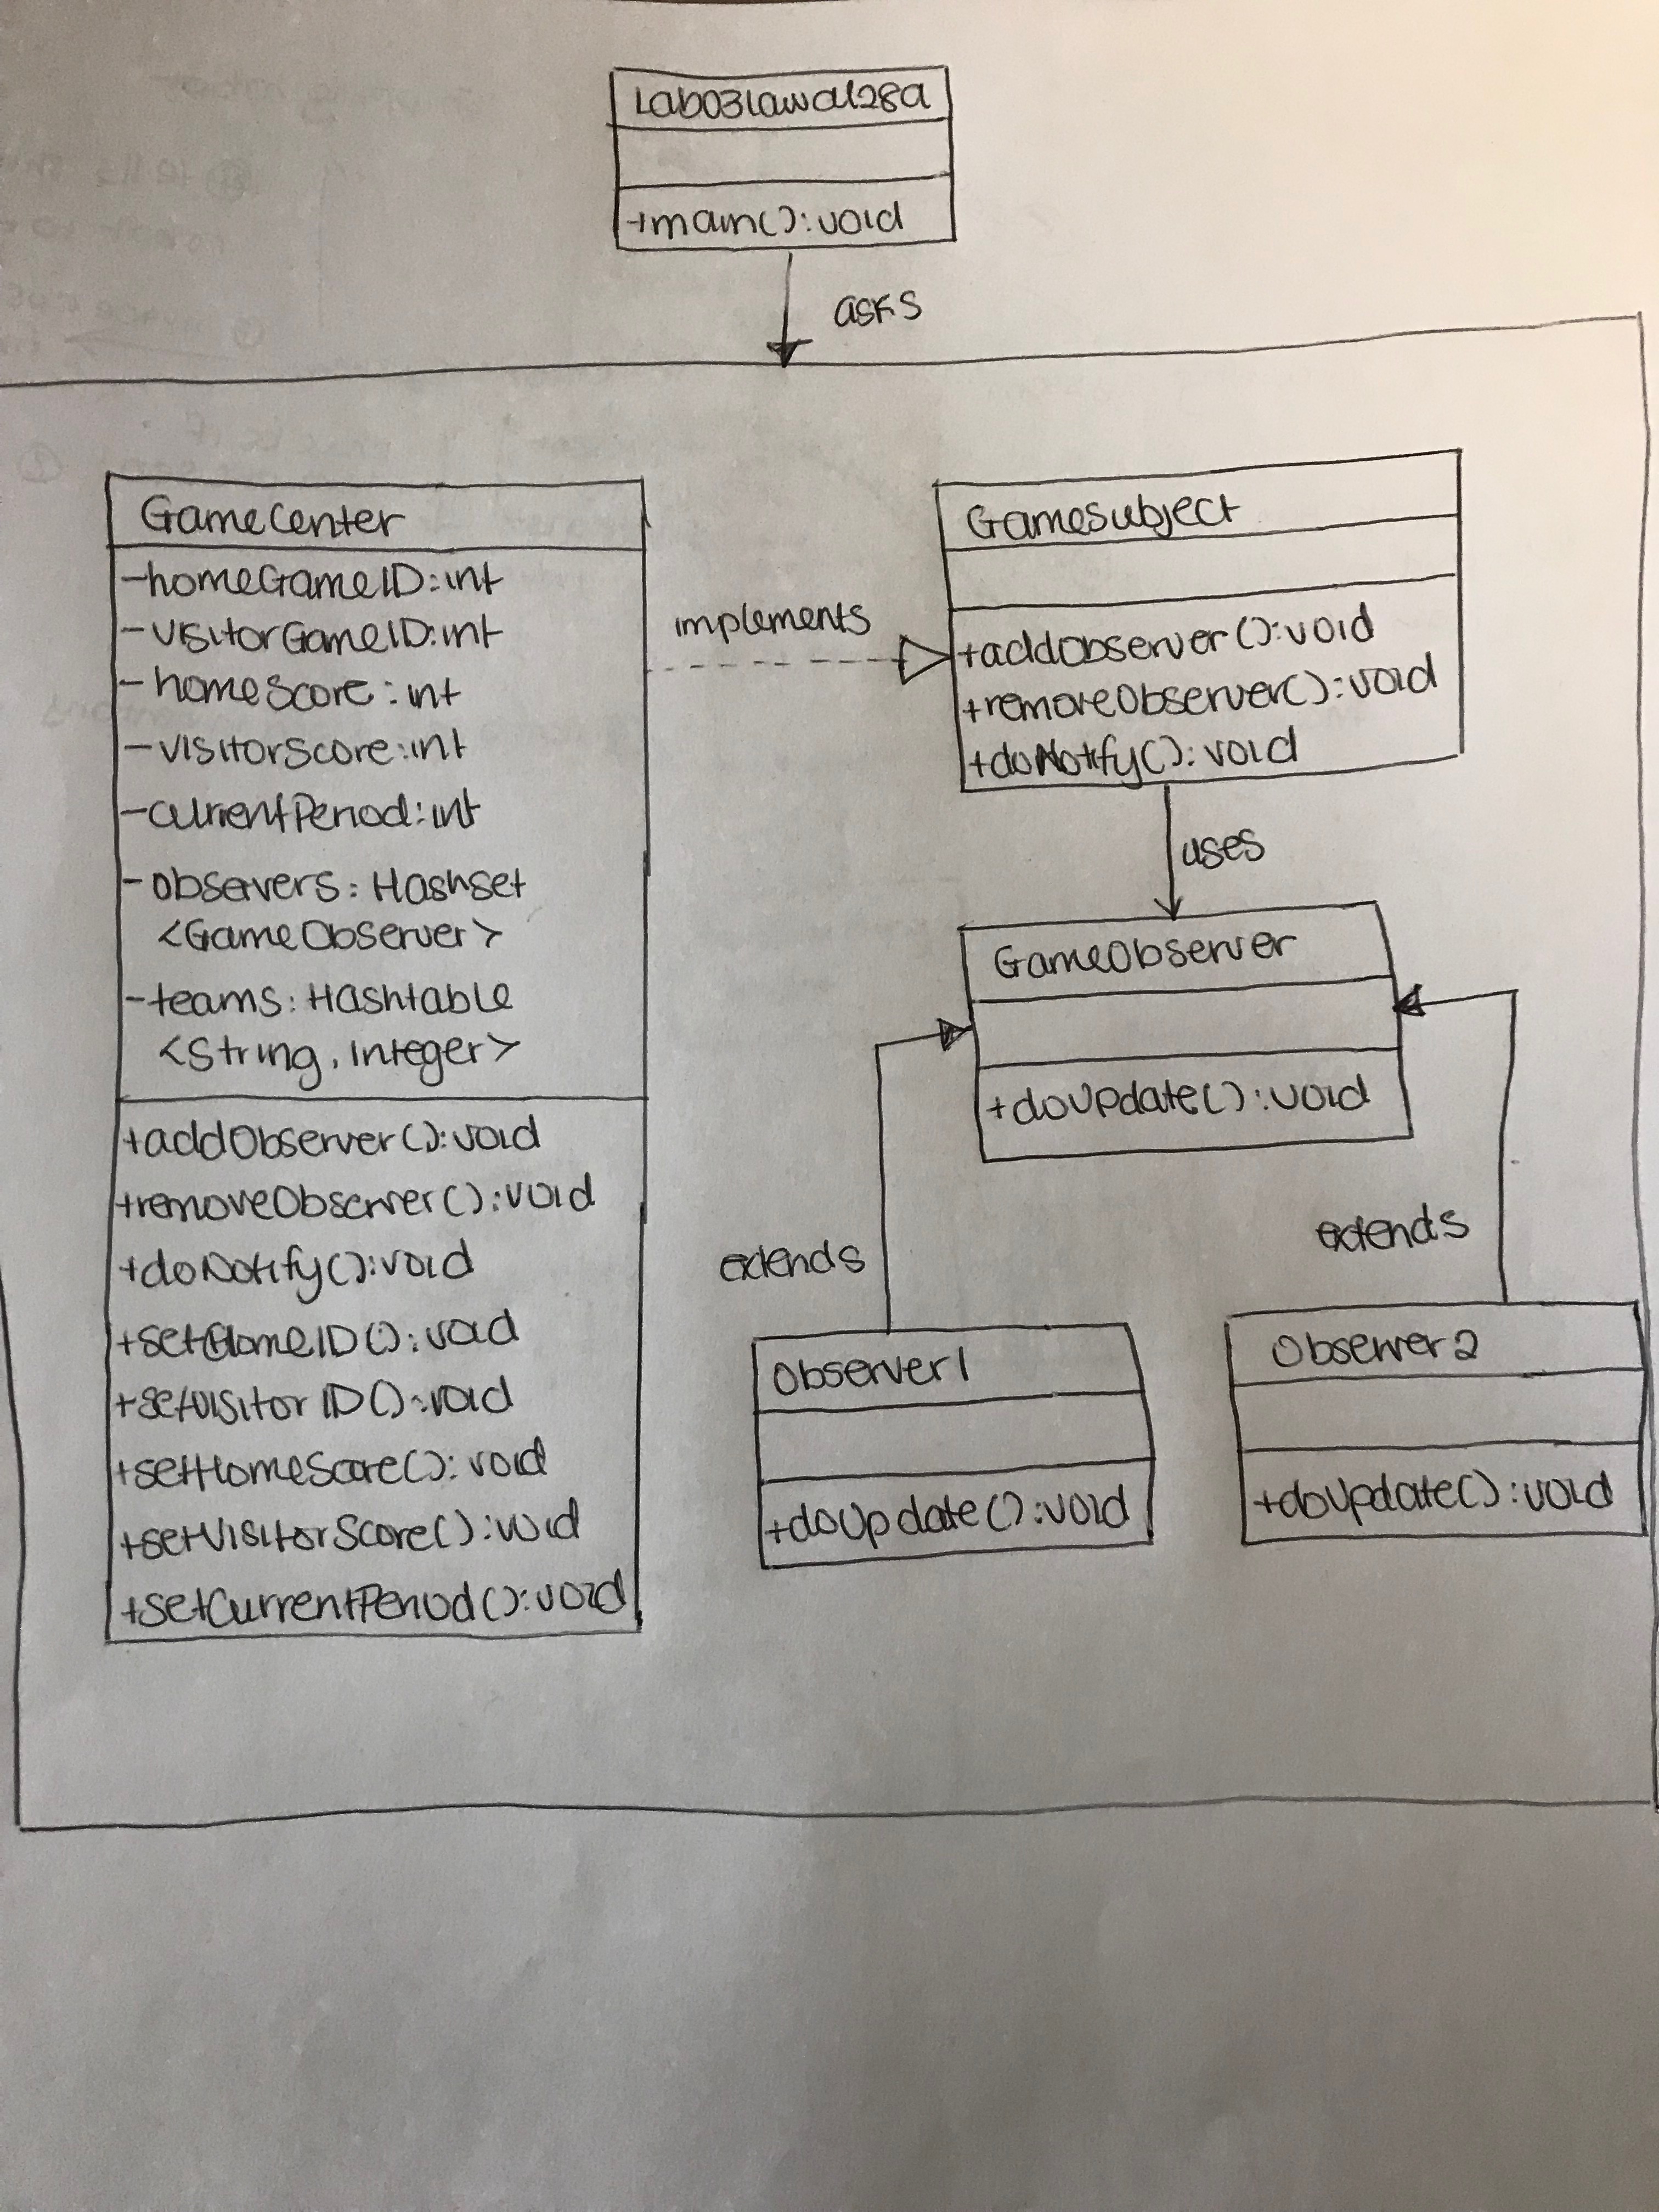 Lab03lawal28a
+main():void
asks
GameCenter
-homeGameID:int
-visitorGameID:int
-homeScore:int
-visitorScore:int
-currentPeriod:int
-observers:Hashset
<GameObserver>
-teams:Hashtable
<String, Integer>
+addObserver():void
+removeObserver():void
+doNotify():void
+setHomeID():void
+setVisitorID():void
+setHomeScore():void
+setVisitorScore():void
+setCurrentPeriod():void
implements
GameSubject
+addObserver():void
+removeObserver():void
+doNotify():void
uses
GameObserver
+doUpdate():void
extends
extends
Observer1
+doUpdate():void
Observer2
+doUpdate():void